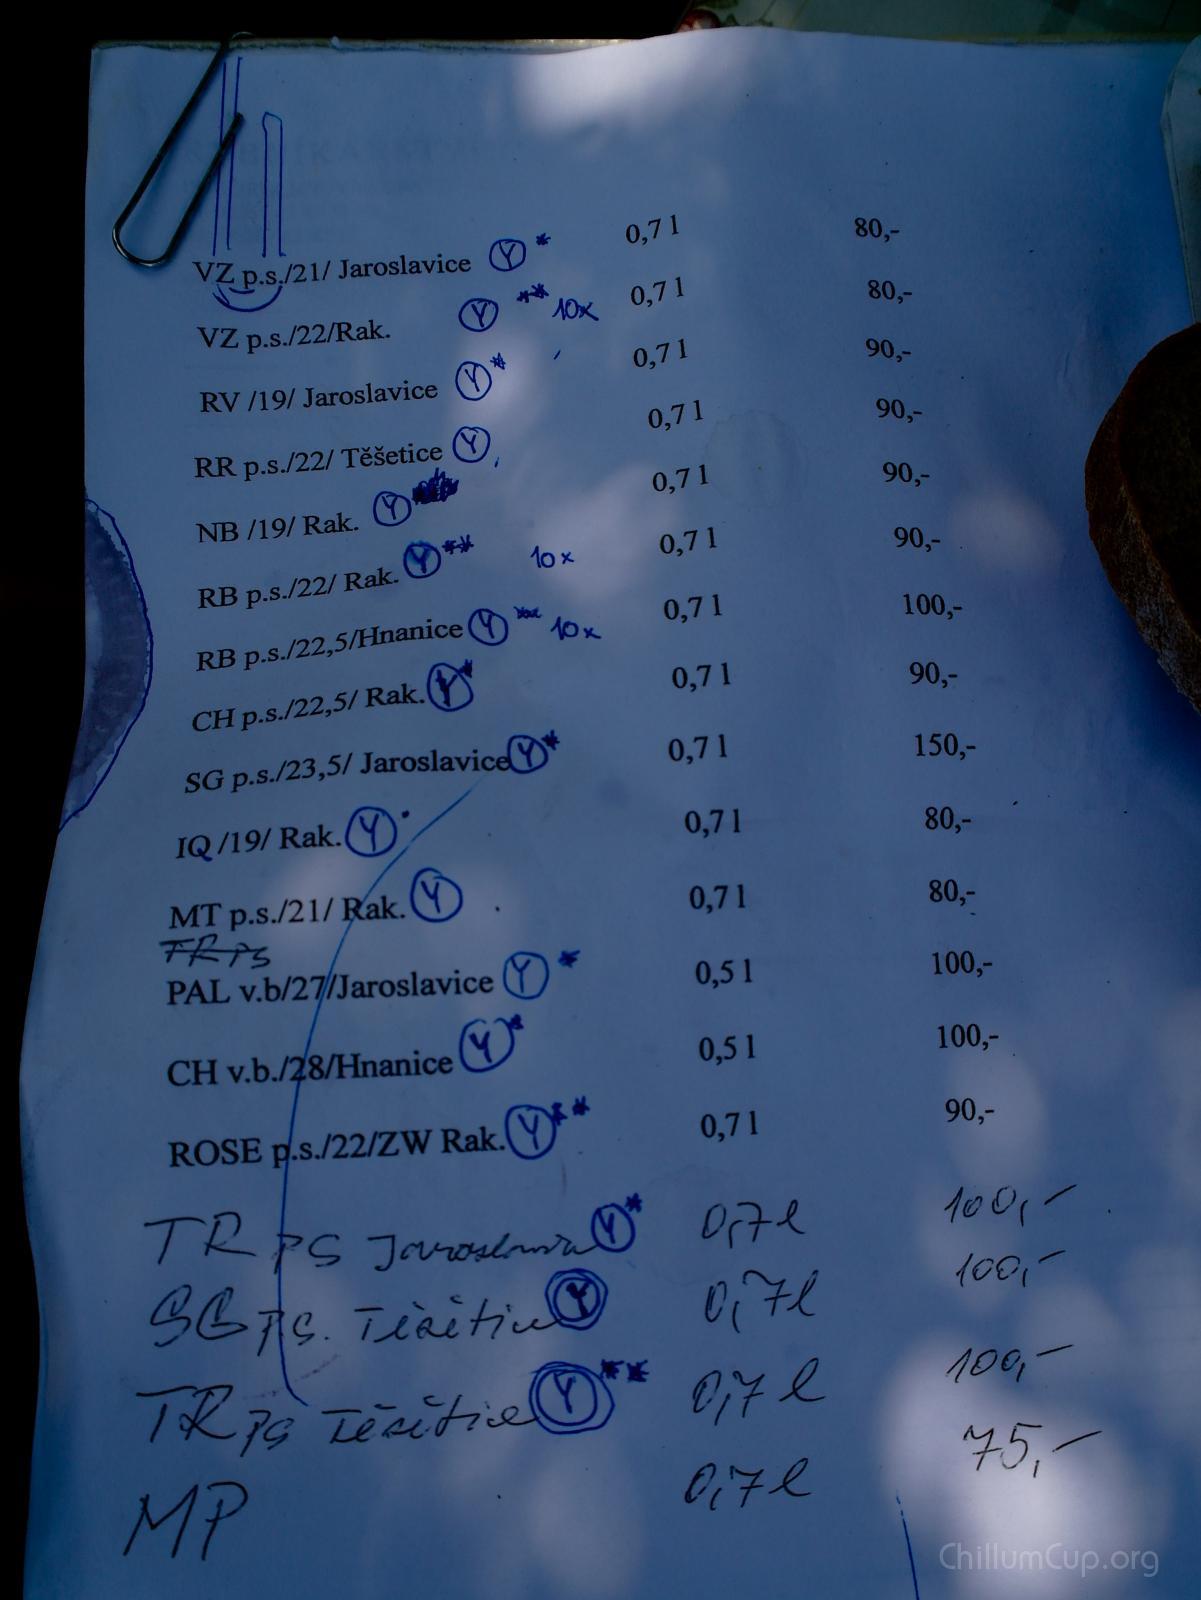 VZ p.s./21/ Jaroslavice Y * 0,7 l 80,-
VZ p.s./22/Rak. Y ** 10x 0,7 l 80,-
RV /19/ Jaroslavice Y * 0,7 l 90,-
RR p.s./22/ Těšetice Y 0,7 l 90,-
NB /19/ Rak. Y 0,7 l 90,-
RB p.s./22/ Rak. Y ** 10x 0,7 l 90,-
RB p.s./22,5/Hnanice Y ** 10x 0,7 l 100,-
CH p.s./22,5/ Rak. Y * 0,7 l 90,-
SG p.s./23,5/ Jaroslavice Y * 0,7 l 150,-
IQ /19/ Rak. Y 0,7 l 80,-
MT p.s./21/ Rak. Y 0,7 l 80,-
TR PS
PAL v.b/27/Jaroslavice Y * 0,5 l 100,-
CH v.b./28/Hnanice Y * 0,5 l 100,-
ROSE p.s./22/ZW Rak. Y ** 0,7 l 90,-
TR PS Y * 0,7 l 100,-
SG PS. Y 0,7 l 100,-
TR PS Y ** 0,7 l 100,-
MP 0,7 l 75,-
ChillumCup.org